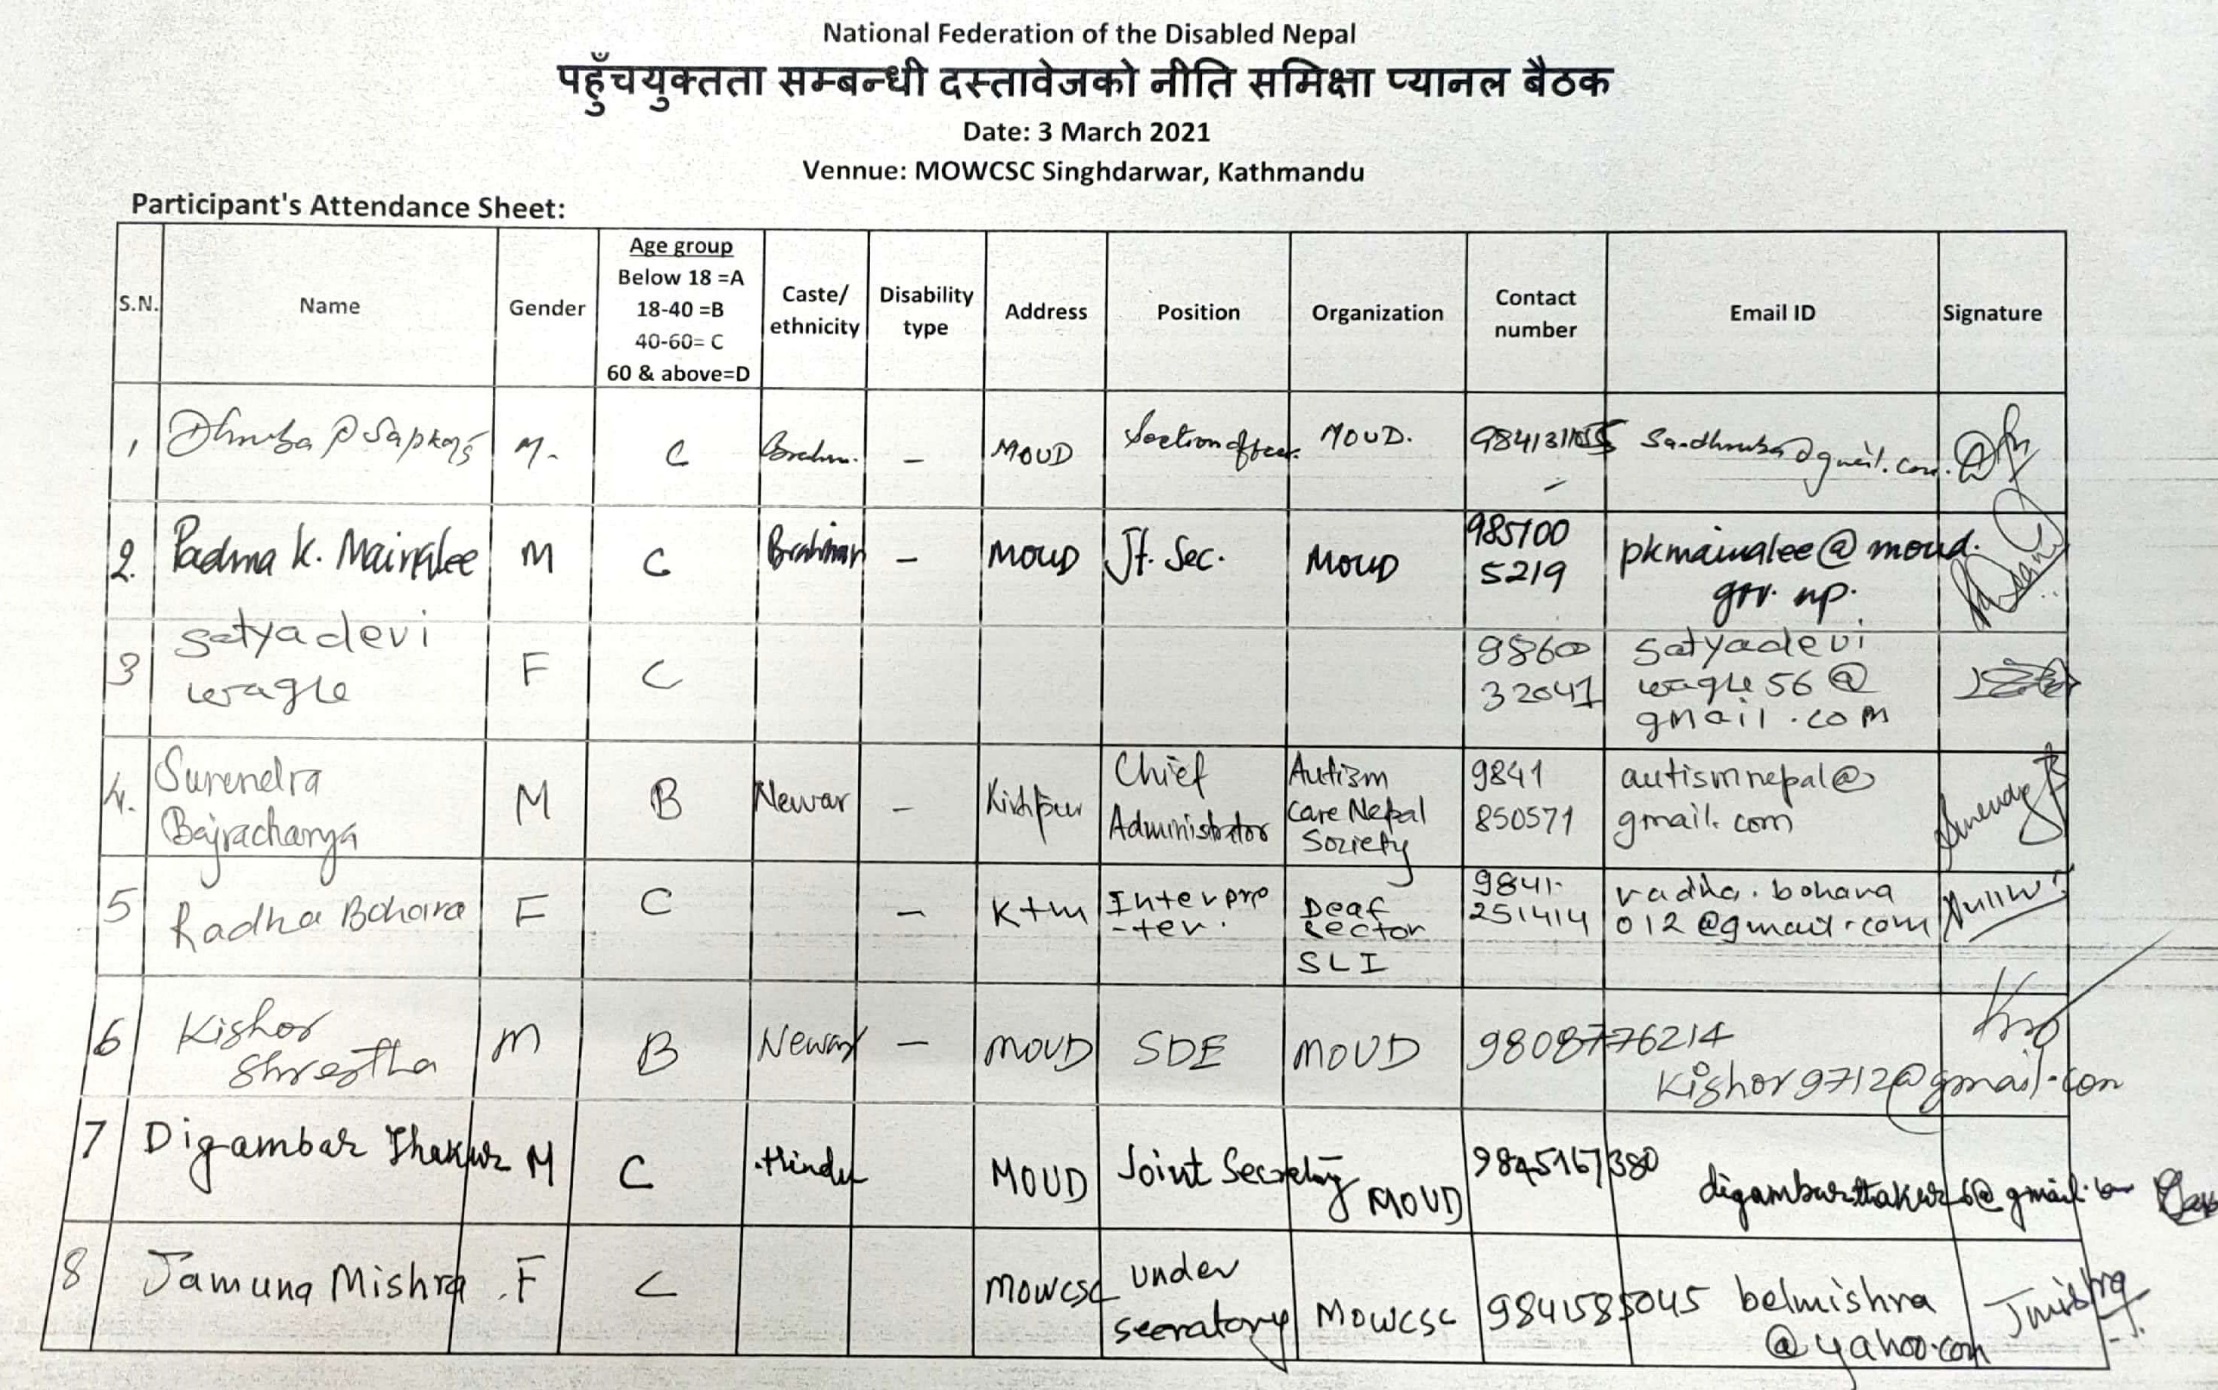 National Federation of the Disabled Nepal
पहुँचयुक्तता सम्बन्धी दस्तावेजको नीति समिक्षा प्यानल बैठक
Date: 3 March 2021
Vennue: MOWCSC Singhdarwar, Kathmandu
Participant's Attendance Sheet:
S.N. Name Gender Age group Below 18 =A 18-40 =B 40-60= C 60 & above=D Caste/ ethnicity Disability type Address Position Organization Contact number Email ID Signature
1 Dhruba P Sapkota M. C – MOUD Section officer MOUD.
2. Padma K. Mainalee M C Brahman – MOUD Jt. Sec. MOUD 985100 5219 pkmainalee@moud. gov.np.
3 Satyadevi wagle F C 9860 32041 satyadevi wagle56@ gmail.com
4. Surendra Bajracharya M B Newar – Kirtipur Chief Administrator Autizm Care Nepal Soziety 9841 850571 autismnepal@ gmail.com
5 Radha Bohara F C – Ktm Interpre -ter. Deaf Sector SLI 9841- 251414 radha.bohara 012@gmail.com
6 Kishor Shrestha M B Newar – MOUD SDE MOUD 9808776214 kishor9712@gmail.com
7 Digambar Thakur M C Hindu MOUD Joint Secretary MOUD 9845167380
8 Jamuna Mishra F C Mowcsc under secratory Mowcsc 9841585045 belmishra @yahoo.com Jmishra